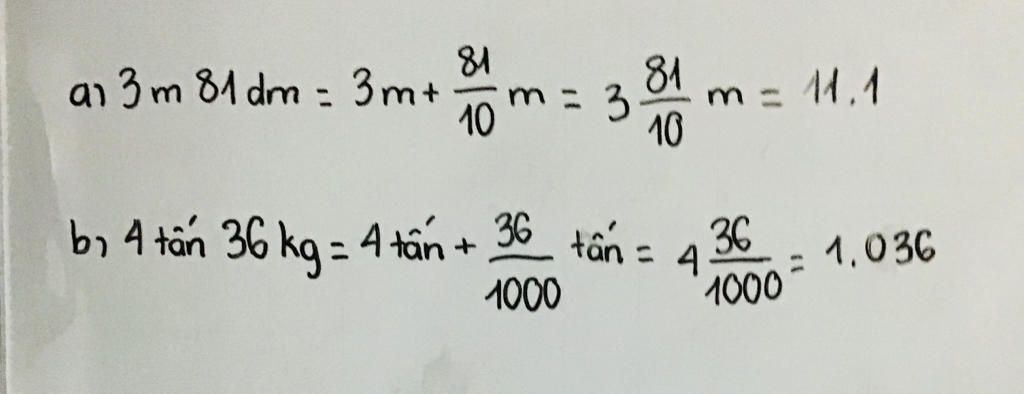 a) 3 m 81 dm = 3m + 81/10 m = 3 81/10 m = 11.1
b) 4 tấn 36 kg = 4 tấn + 36/1000 tấn = 4 36/1000 = 1.036